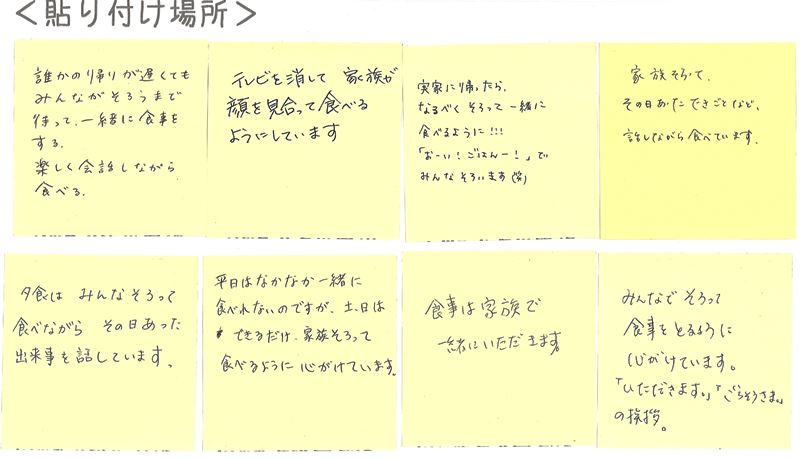 ＜貼り付け場所＞
誰かの帰りが遅くても
みんながそろうまで
待って、一緒に食事を
する。
楽しく会話しながら
食べる。
テレビを消して 家族が
顔を見合って食べる
ようにしています
実家に帰ったら、
なるべく そろって 一緒に
食べるように!!!
「おーい！ごはんー！」で
みんな そろいます(笑)
家族そろって、
その日あったできごとなど、
話しながら食べています。
夕食は みんなそろって
食べながら その日あった
出来事を話しています。
平日はなかなか一緒に
食べれないのですが、土、日は
できるだけ、家族そろって
食べるように 心がけています。
食事は家族で
一緒にいただきます。
みんなで そろって
食事をとるように
心がけています。
「いただきます。」「ごちそうさま。」
の挨拶。